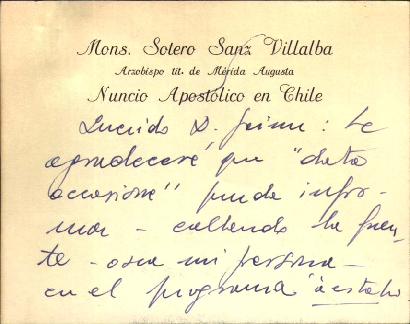 Mons. Sotero Sanz Villalba
Arzobispo tit. de Mérida Augusta
Nuncio Apostólico en Chile
Querido D. Jaime: Le
agradeceré que "data
occasione" pueda infor-
mar - callando la fuen-
te - osea mi persona -
en el programa "a esta ho